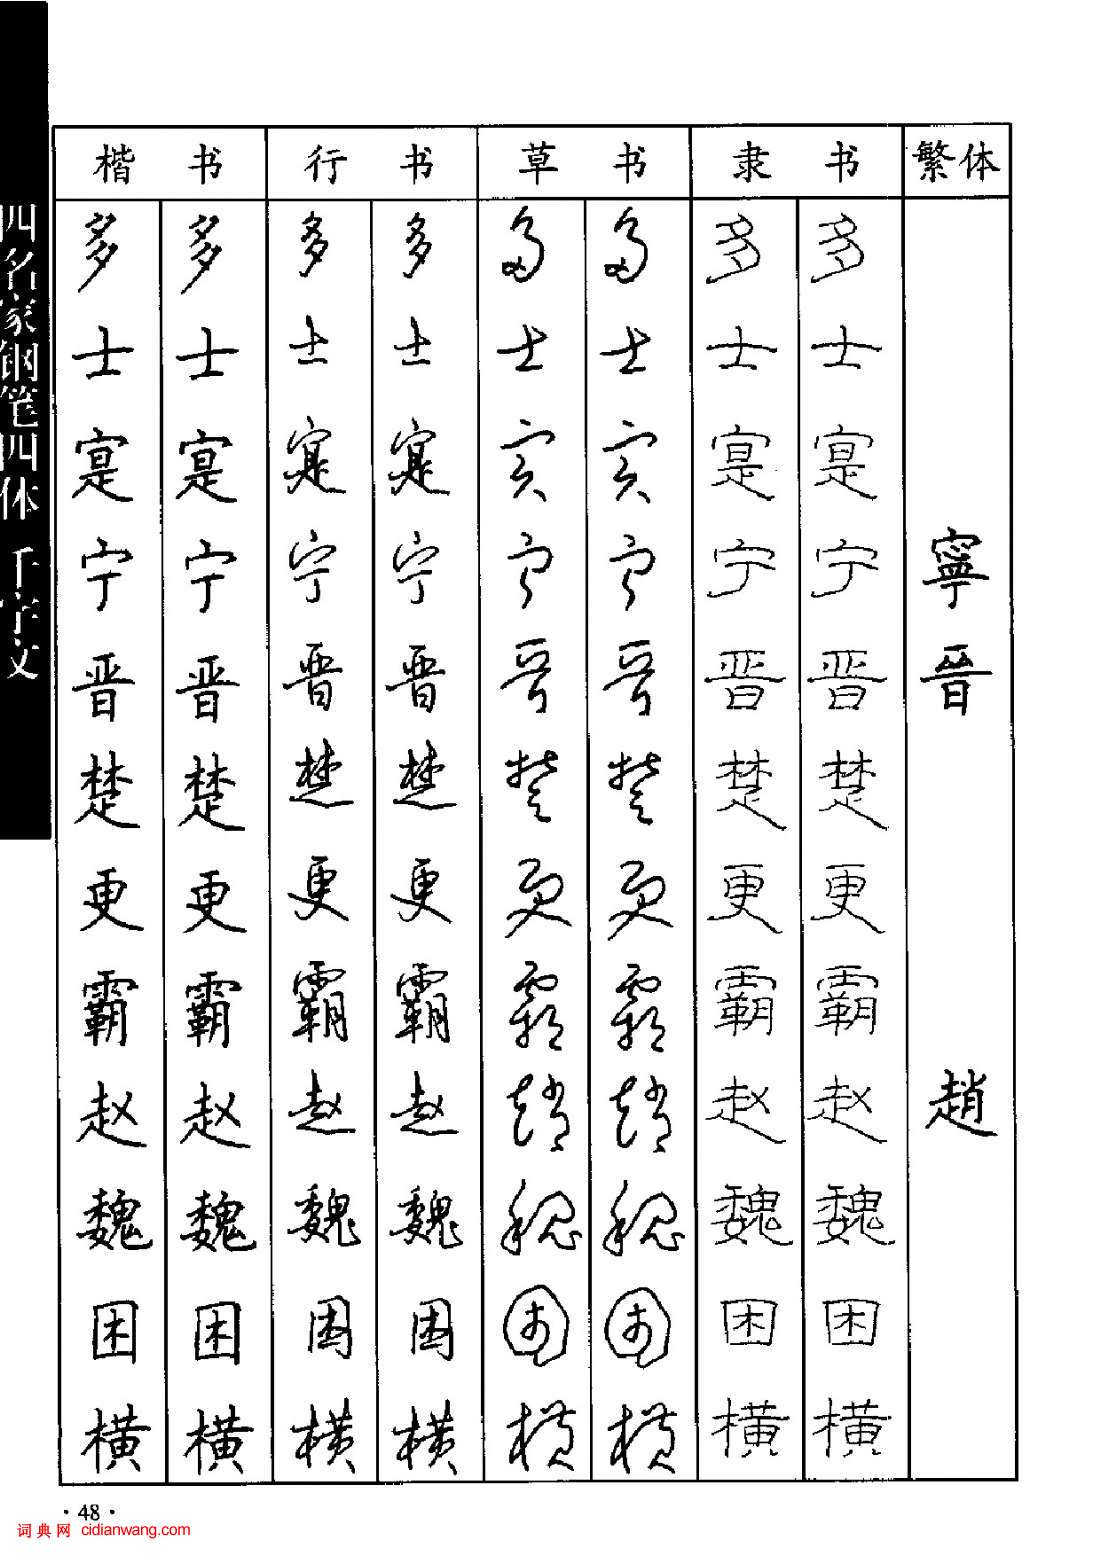 四名家钢笔四体 千字文
楷书 行书 草书 隶书 繁体
多 多 多 多 多 多 多 多
士 士 士 士 士 士 士 士
寔 寔 寔 寔 寔 寔 寔 寔
宁 宁 宁 宁 宁 宁 宁 宁 寧
晋 晋 晋 晋 晋 晋 晋 晋 晉
楚 楚 楚 楚 楚 楚 楚 楚
更 更 更 更 更 更 更 更
霸 霸 霸 霸 霸 霸 霸 霸
赵 赵 赵 赵 趙 趙 赵 赵 趙
魏 魏 魏 魏 魏 魏 魏 魏
困 困 困 困 困 困 困 困
横 横 横 横 横 横 横 横
·48·
词典网 cidianwang.com